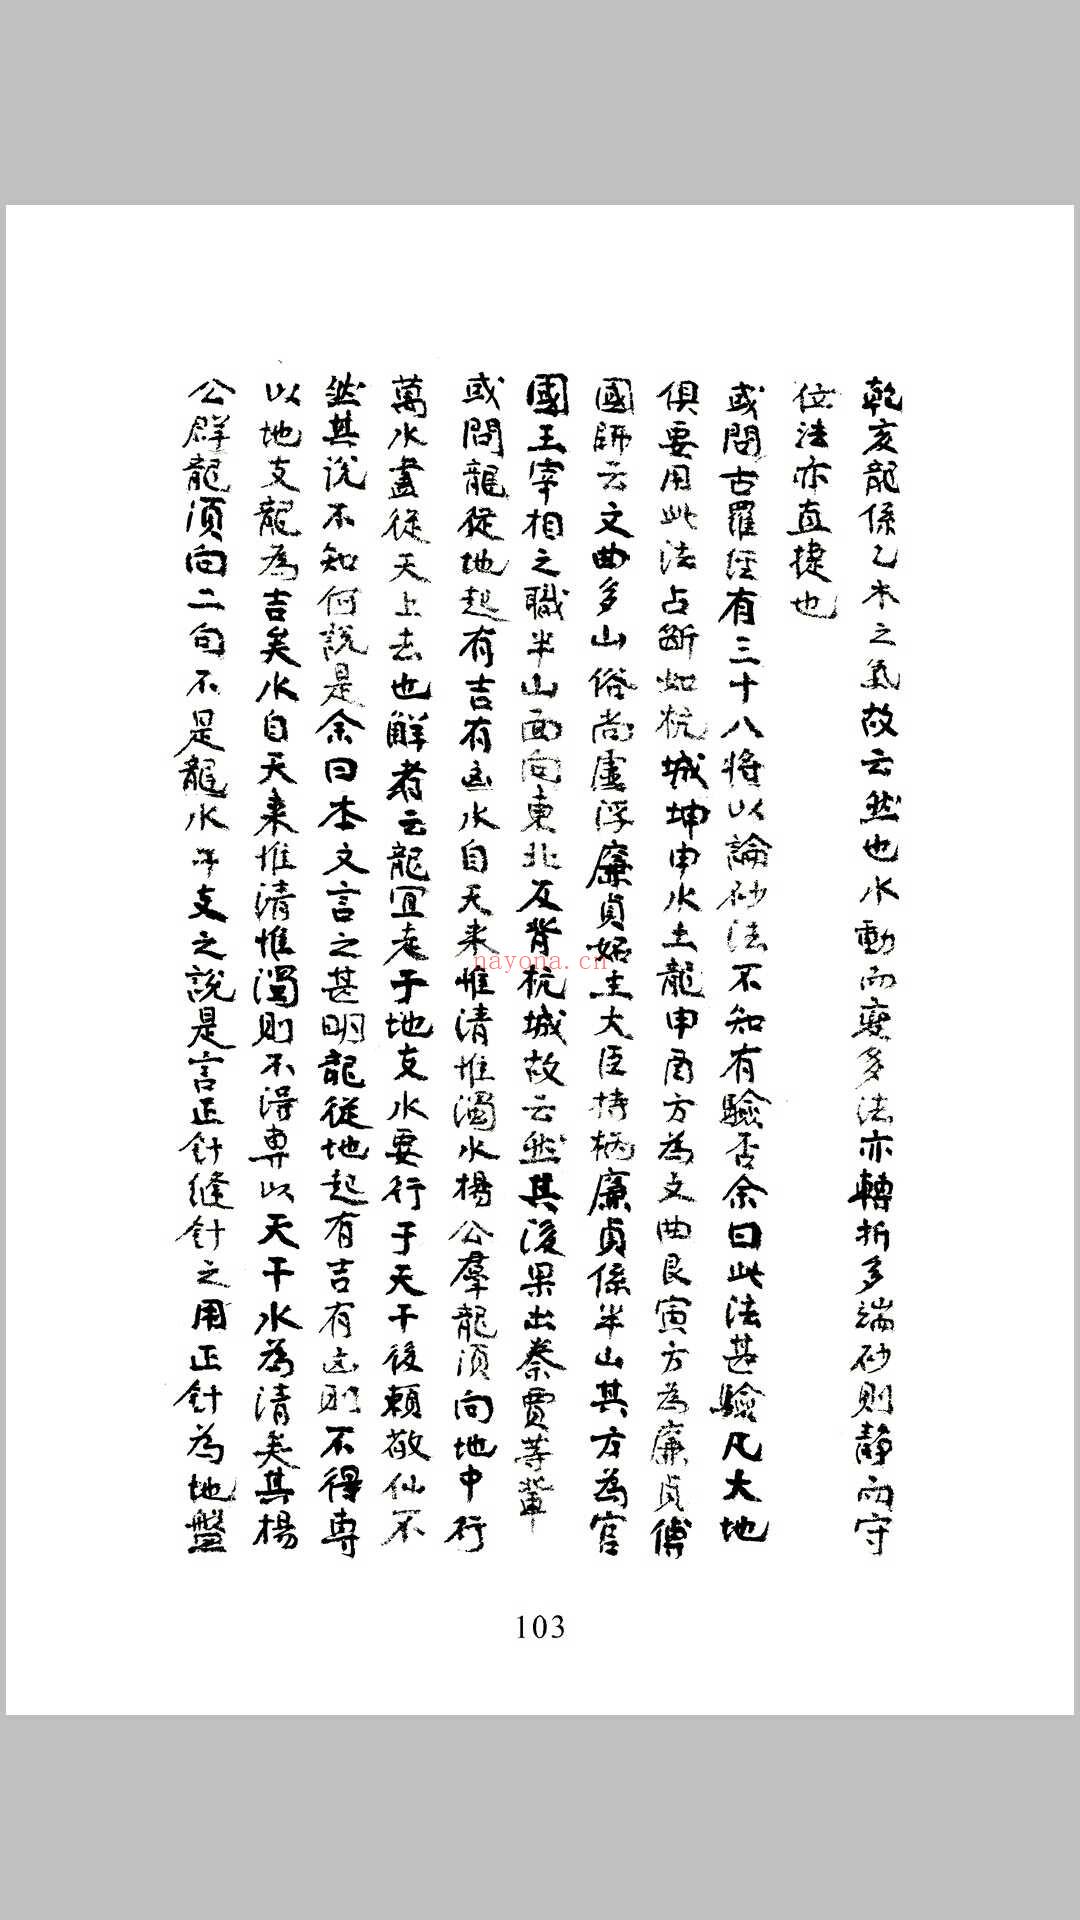 乾亥龍係乙木之氣故云然也水動而變多法亦轉折多端砂則静而守
位法亦直捷也
或問古羅經有三十八將以論砂法不知有驗否余曰此法甚驗凡大地
俱要用此法占斷如杭城坤申水土龍申酉方為文曲艮寅方為廉貞傅
國師云文曲多山俗尚虛浮廉貞始主大臣持柄廉貞係半山其方為官
國王宰相之職半山面向東北反背杭城故云然其後果出秦賈等輩
或問龍從地起有吉有凶水自天来惟清惟濁水楊公羣龍須向地中行
萬水盡從天上去也解者云龍宜老于地支水要行于天干後賴敬仙不
然其說不知何說是余曰本文言之甚明龍從地起有吉有凶則不得専
以地支龍為吉矣水自天来惟清惟濁則不得専以天干水為清矣其楊
公群龍須向二句不是龍水干支之說是言正針縫針之用正針為地盤
nayona.cn
103